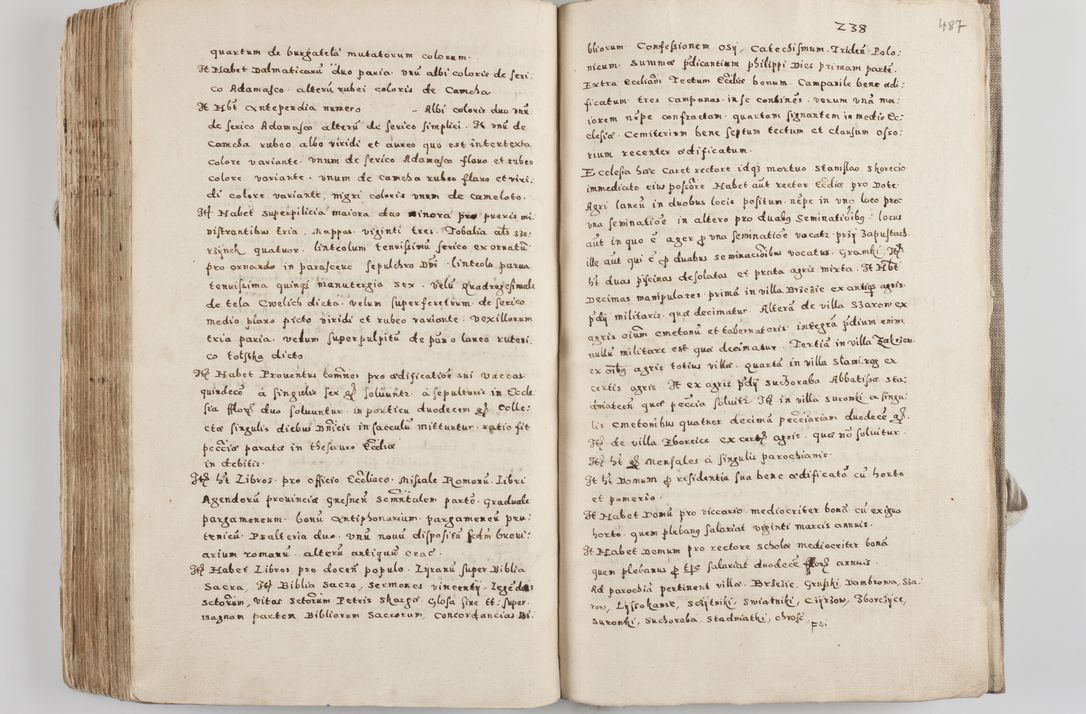 quartum de burgatela mutatorum colorum.
It Habet Dalmaticarũ duo paria. vnũ albi coloris de seri:
co Adamasco. alterũ rubei coloris de Camcha
It Hbt Antependia numero - Albi coloris duo vnũ
de serico Adamasco alterũ de serico simplici. It vnũ de
Camcha rubeo albo viridi et aureo quo est intertexta
colore variante. vnum de serico Adamasco flauo et rubeo
colore variante. vnum de camcha rubeo flauo et viri:
di colore variante, nigri coloris vnum de cameloto.
It Habet superpilicia maiora duo minora pro pueris mi
nistrantibus tria. mappas viginti tres. Tobalia als
quatuor. linteolum tenuissimũ serico ex ornatũ
pro ornando in parasceue sepulchro Dni. linteola parua
tenuissima quinqz manutergia sex. Velũ quadragesimale
de tela Cwelich dicta. velum super feretrum de serico
medio plano picto viridi et rubeo variante. vexillorum
tria paria. velum super pulpitũ de panno laneo ruteni:
co dicto
It Habet Prouentus pro ædificatione sui vaccas
quindecẽ à singulis sex soluuntr. à sepulturis in Eccle
sia duo soluuntur in porticu duodecem Colle:
ctæ singulis diebus Dnicis in sacculũ mittuntur. ratio fit
pecciæ parata in thesauro Eccliæ
in debitis.
It ht Libros pro officio Eccliaco. Missale Romanũ. Libri
Agendorũ prouinciæ gnesnen partẽ. Graduale
pargameneum. bonũ Antiphonarium. pargameneũ pru:
tenicũ. Psalteria duo. vnũ nouũ dispositũ scdm breui:
arium romanũ. alterũ antiquũ crac.
It Habet Libros pro docen populo. Lyranũ super Biblia
Sacra. It Biblia Sacra, Sermones vincentij. legẽdas
Sctorum, vitas Sctorum Petris Skarga. Glosa siue tt. super.
magnam partem Bibliorum Sacrorum, Concordancia Bi.
238
487
bliorum Confessionem Osij, Catechismum Triden Polo:
nicum. Summæ pdicantium philippi Dies primam partẽ.
Extra eccliam Tectum Eccliæ bonum. Campanile bene ædi:
ficatum. tres campanas in se continẽs. verum vnã ma:
iorem nẽpe confractam. quartam signantem in medio Ec:
clesiæ. Cemiterium bene septum tectum et clausum osso:
rium recenter ædificatum.
Ecclesia hæc caret rectore idqz mortuo Stanislao Skorecio
immediato eius possore. Habet aũt rector Eccliæ pro Dote.
Agri laneũ in duobus locis positum. nẽpe in vno loco pro
vna seminatiõe in altero pro duabg seminatioibg: locus
aũt in quo ẽ ager p vna seminatiõe vocatr przy Zapustach
ille aũt qui ẽ p duabus seminacõibus vocatus. Gramki. It
ht duas piscinas desolatas et prata agris mixta. It Hbt
Decimas manipulares. primã in villa Brzezie ex agris.
pdij militaris. quæ decimatur. Alterã de villa Szarow ex
agris oium cmetonũ et tabernatoris. integrã pdium enim
nullũ militare est quæ decimatur. Tertiã in villa Zakrzow.
ex oibg agris totius villæ. quartã in villa ex
certis agris. It ex agris pdij suchoraba Abbatissæ sta:
niatecen quæ peccia soluitr. It in villa suronki a singu
lis cmetonibus quatuor decimã pecciariam duodecẽ
It de villa Zborcice ex certis agris. quæ nõ soluitur.
It ht mensales à singulis parochianis.
It ht Domum p residentia sua bene ædificatã cũ horto
et pomerio.
It Habet Domũ pro viccario. mediocriter bonã cũ exiguo
horto. quem plebang salariat viginti marcis annuis.
It Habet Domum pro rectore scholæ mediocriter bonã
quem plebanus p tpe salariat duodecẽ annuis.
Ad parochiã pertinent villæ. Brzezie, Gruszki, Dambrowa, Sza:
row, Lysokanie, Scijtniki, Swiatniki, Cijrzow, Zborczijce,
Suronki, Suchoraba, Stadniatki, chrosc.